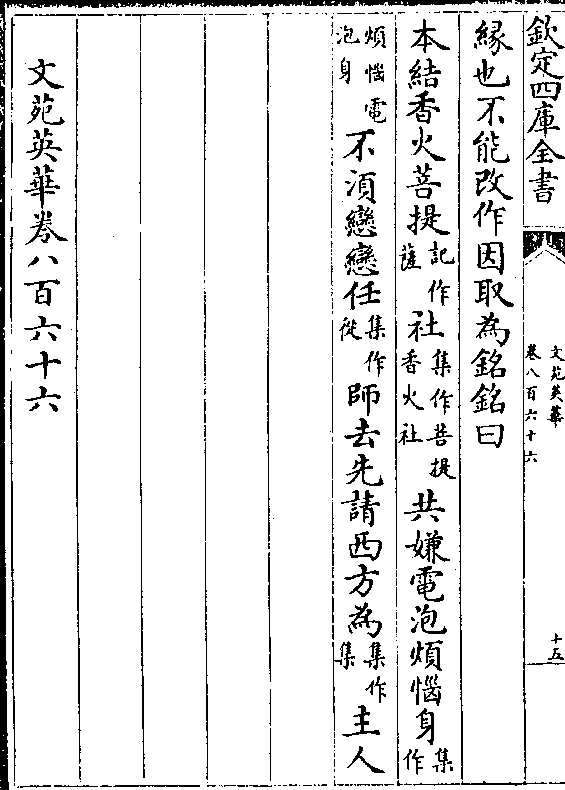 欽定四庫全書
文苑英華
卷八百六十六
十五
縁也不能改作因取為銘銘曰
本結香火菩提記作薩社集作菩提香火社共嫌電泡煩惱身集作
煩惱電泡身不湏戀戀任集作從師去先請西方為集作集主人
文苑英華卷八百六十六